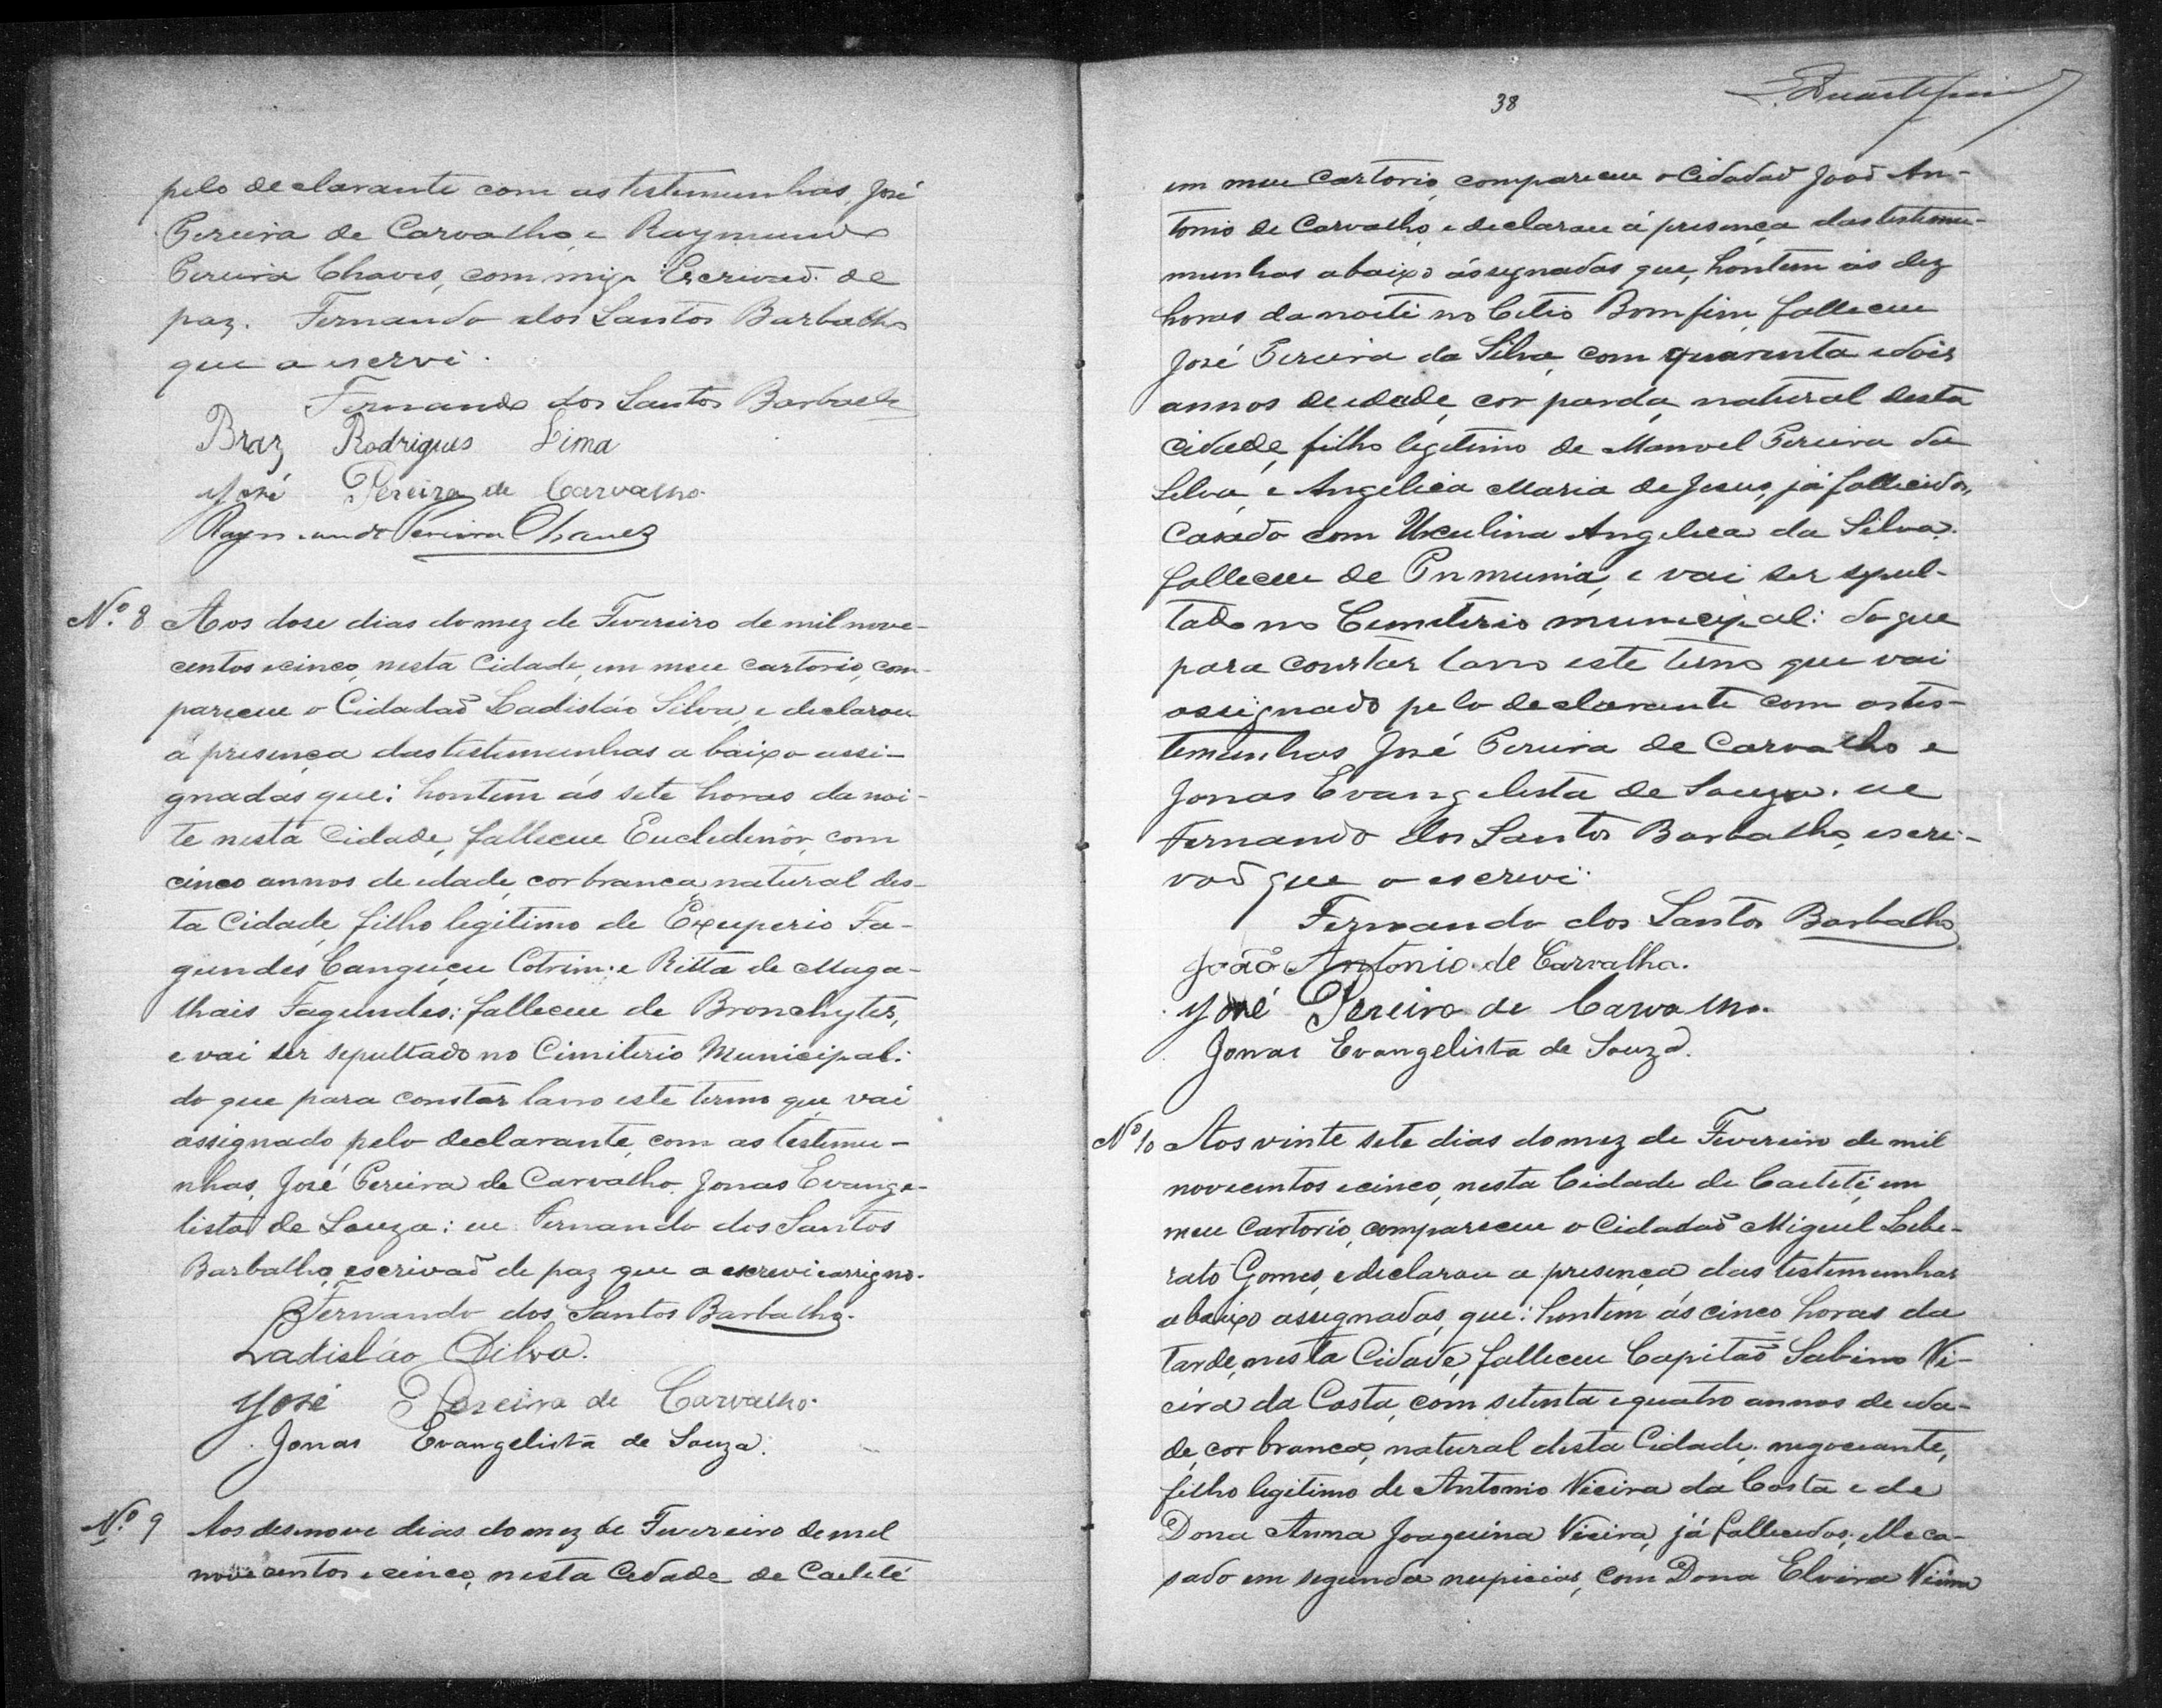 pelo declarante com as testemunhas, José
Pereira de Carvalho, e Raymundo
Pereira Chaves, commigo Escrivaõ de
paz. Fernando dos Santos Barbalho
que o escrvi.
Fernando dos Santos Barbalho
Braz Rodrigues Lima
José Pereira de Carvalho.
Raymundo Pereira Chaves
Nº 8 Aos dose dias do mez de Fevereiro de mil nove-
centos e cinco, nesta Cidade, em meu cartorio, com-
pareceu o Cidadaõ Ladisláo Silva, e declarou
á presença das testemunhas abaixo assi-
gnadas que: hontem ás sete horas da noi-
te nesta Cidade, falleceu Euclidenôr, com
cinco annos de edade, cor branca, natural des-
ta Cidade, filho legitimo de Exuperio Fa-
gundes Canguçu Cotrim e Ritta de Maga-
lhais Fagundes: falleceu de Bronchytes,
e vai ser sepultado no Cimiterio Municipal:
do que para constar lavro este termo que vai
assignado pelo declarante, com as testemu-
nhas, José Pereira de Carvalho, Jonas Evange-
lista de Souza: eu Fernando dos Santos
Barbalho, escrivaõ de paz que o escrevi e assigno.
Fernando dos Santos Barbalho.
Ladisláo Silva.
José Pereira de Carvalho.
Jonas Evangelista de Souza.
Nº 9 Aos desenove dias do mez de Fevereiro de mil
novecentos e cinco, nesta Cidade de Caeteté
38
em meu Cartorio, compareceu o Cidadaõ Joaõ An-
tonio de Carvalho, e declarou á presença das testemu-
munhas abaixo assegnadas que, hontem ás dez
horas da noite no Citio Bomfim, falleceu
José Pereira da Silva, com quarenta e dois
annos de edade, cor parda, natural desta
Cidade, filho legitimo de Manoel Pereira da
Silva, e Angelica Maria de Jesus, já fallecidos,
Casado com Usculina Angelica da Silva.
falleceu de Pnmunia, e vai ser sepul-
tado no Cemiterio municipal: do que
para constar lavro este termo que vai
assignado pelo declarante com as tes-
temunhas José Pereira de Carvalho e
Jonas Evangelista de Souza. eu
Fernando dos Santos Barbalho, escri-
vaõ que o escrevi.
Fernando dos Santos Barbalho
Joaõ Antonio de Carvalho.
José Pereira de Carvalho.
Jonas Evangelista de Souza.
Nº 10 Aos vinte sete dias do mez de Fevereiro de mil
novecentos e cinco, nesta Cidade de Caeteté, em
meu Cartorio, compareceu o Cidadaõ Miguel Libe-
rato Gomes, e declarou a presença das testemunhas
abaixo assignadas, que: hontem ás cinco horas da
tarde, nesta Cidade, falleceu Capitaõ Sabino Vi-
eira da Costa, com setenta e quatro annos de eda-
de, cor branca, natural desta Cidade, negociante,
filho legitimo de Antonio Vieira da Costa e de
Dona Anna Joaquina Vieira, já fallecidos; elle ca-
sado em segunda nupicias, com Dona Elvira Vieira